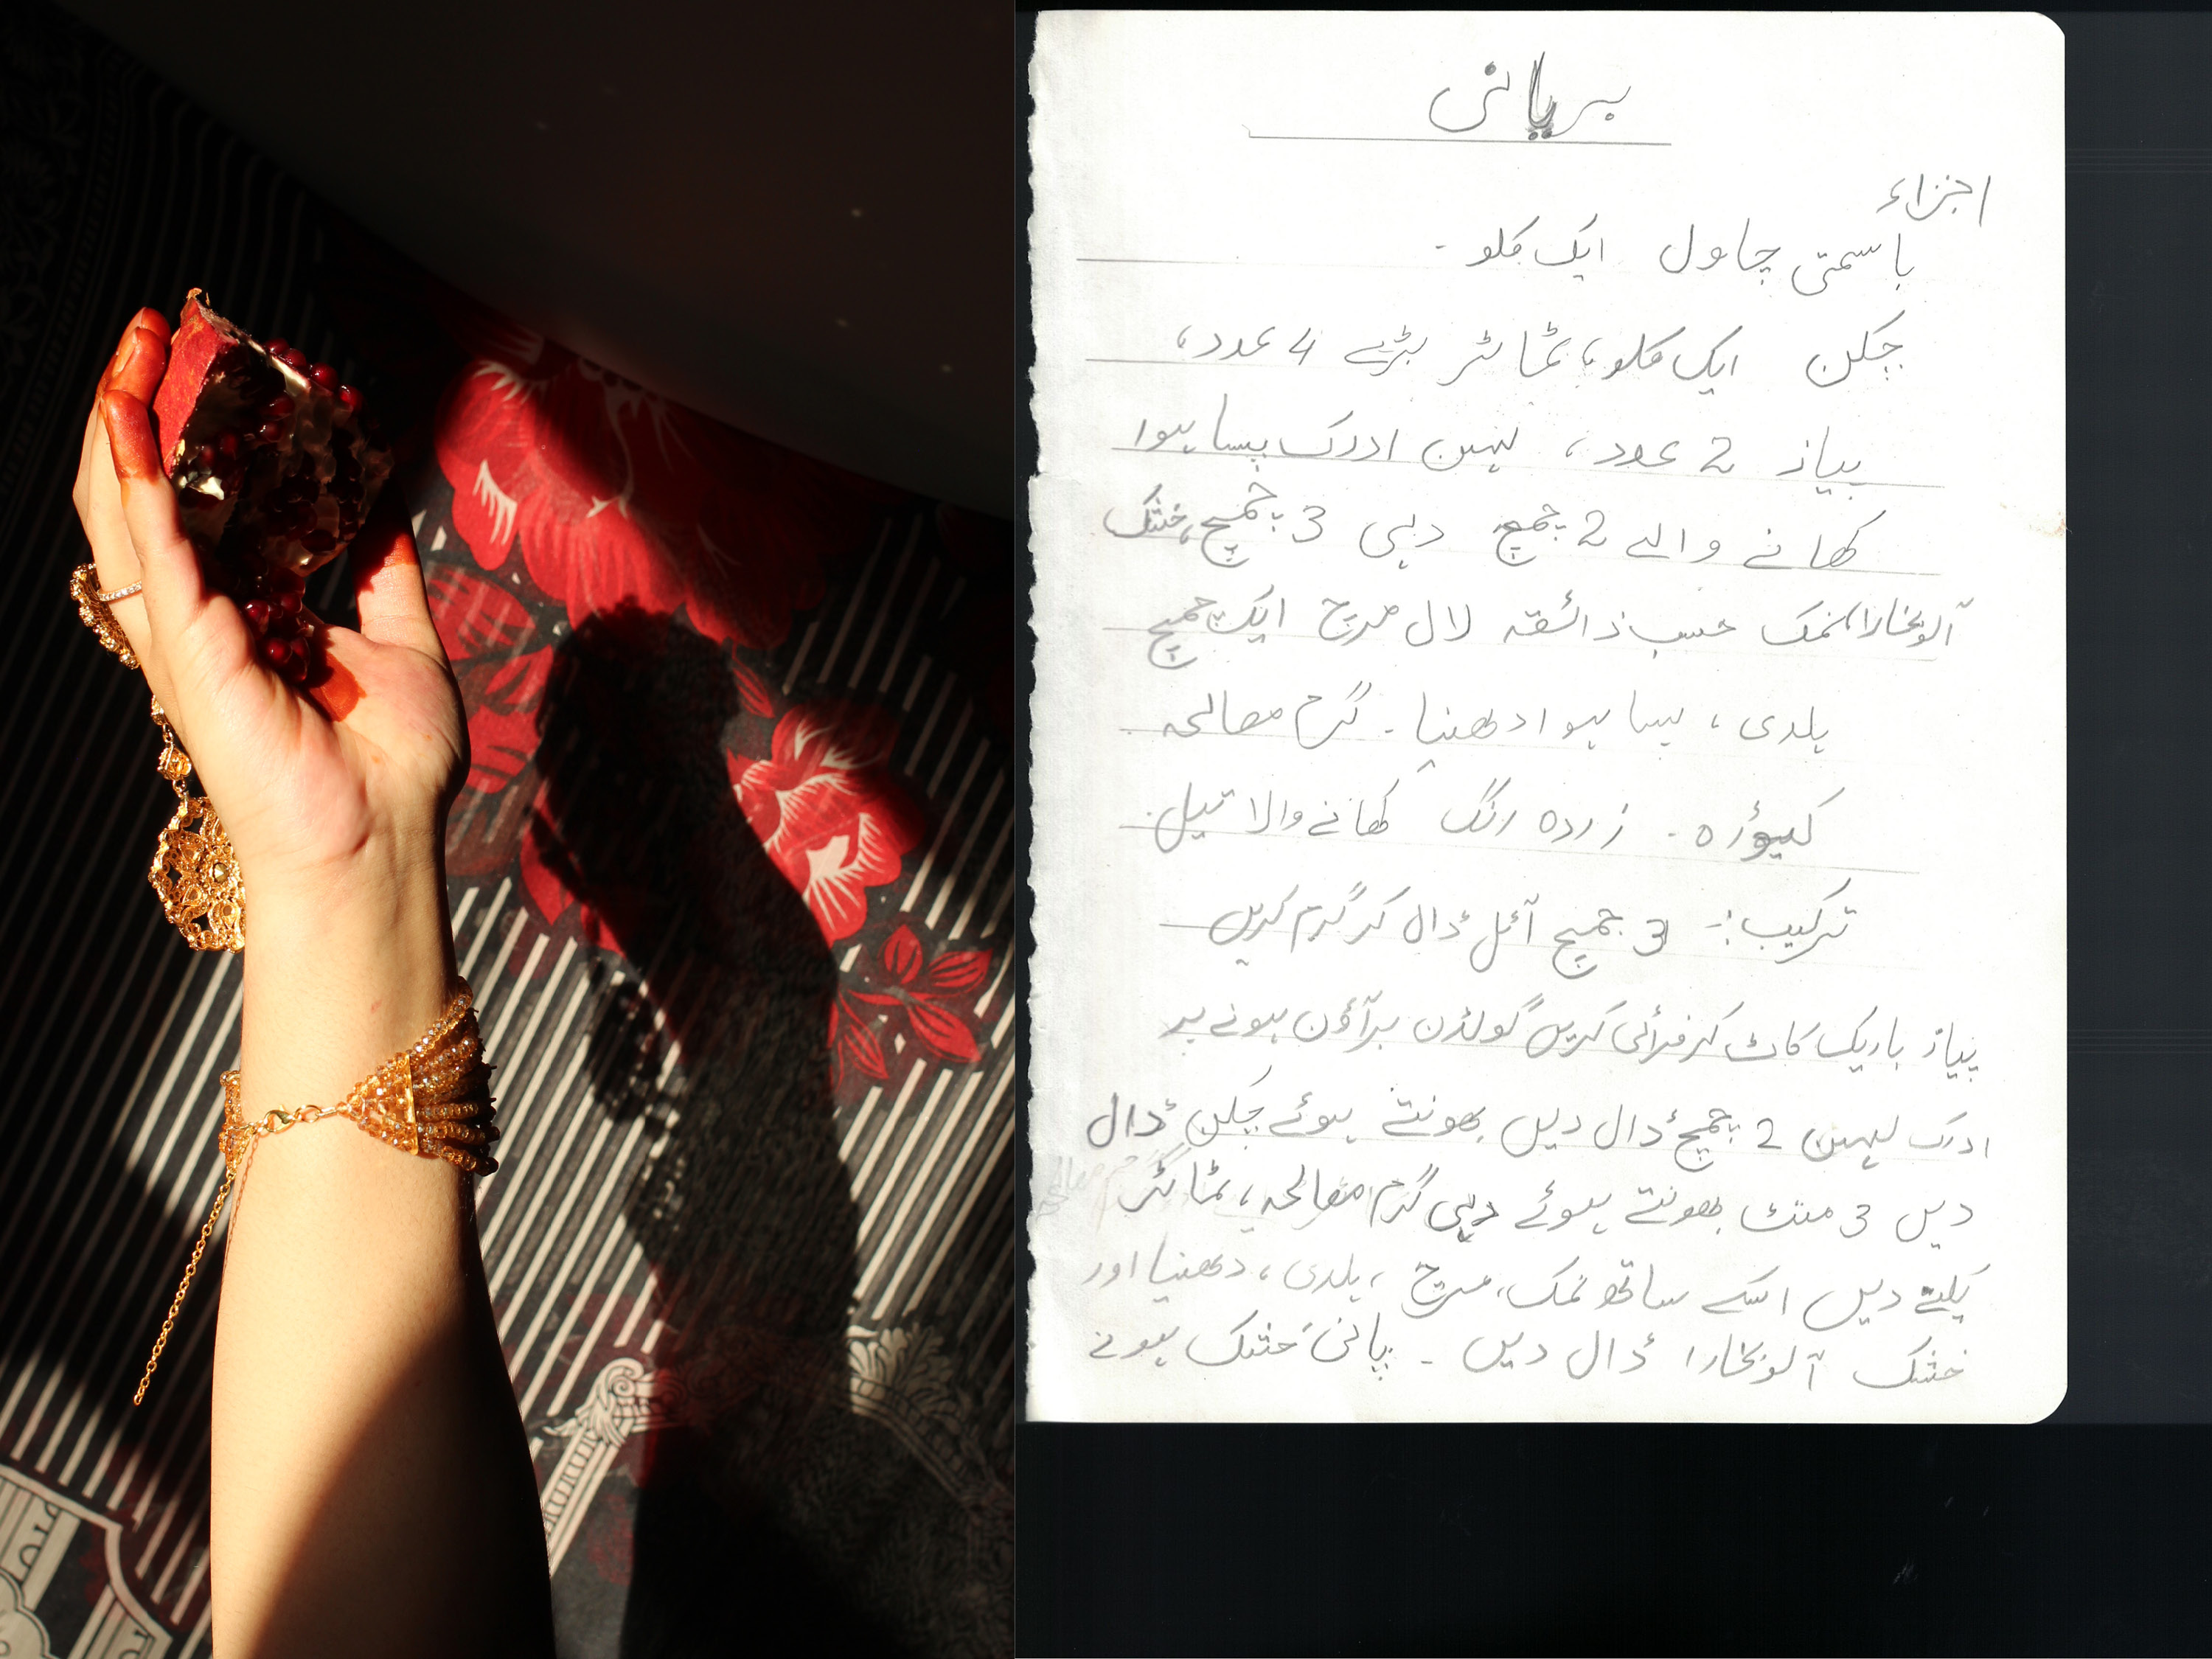 بریانی
اجزاء
باسمتی چاول ایک کلو -
چکن ایک کلو، ٹماٹر بڑے 4 عدد،
پیاز 2 عدد، لہسن ادرک پسا ہوا
کھانے والے 2 چمچ دہی 3 چمچ، خشک
آلو بخارا، نمک حسب ذائقہ لال مرچ ایک چمچ
ہلدی، پسا ہوا دھنیا - گرم مصالحہ
کیوڑہ - زردہ رنگ کھانے والا تیل
ترکیب :- 3 چمچ آئل ڈال کر گرم کریں
پیاز باریک کاٹ کر فرائی کریں گولڈن براؤن ہونے پر
ادرک لہسن 2 چمچ ڈال دیں بھونتے ہوئے چکن ڈال
دیں 3 منٹ بھونتے ہوئے دہی گرم مصالحہ، ٹماٹر
دیں اسکے ساتھ نمک، مرچ، ہلدی، دھنیا اور
خشک آلو بخارا ڈال دیں - پانی خشک ہونے